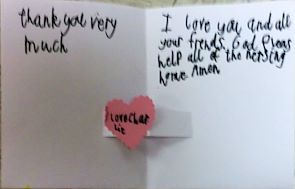 thank you very
much
I love you and all
your frends. God Pleas
help all of the nersing
home Amen
Love Char
lie